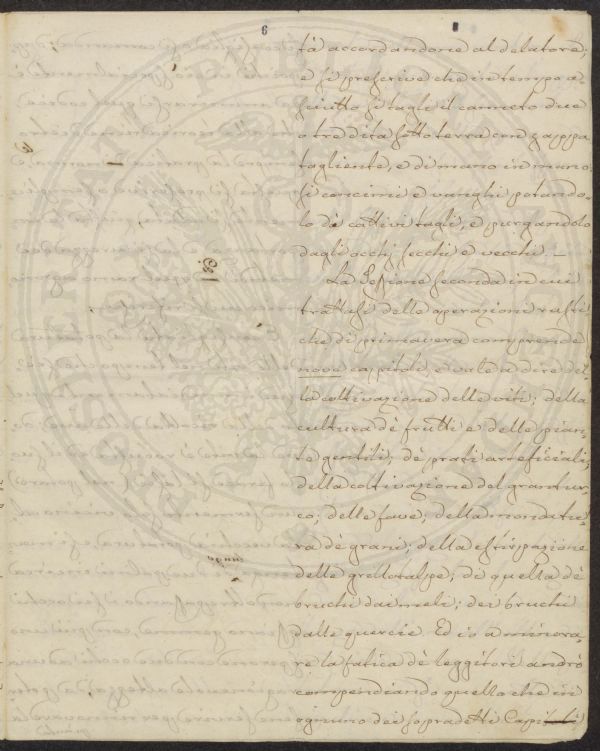 6
tà accordandone al delatore;
e si prescrive che in tempo a-
sciutto si tagli il canneto due
o tre dita sotto terra con zappa
tagliente, e di mano in mano
si concimi e vanghi potando-
lo dè cattivi tagli, e purgandolo
dagli occhi secchi e vecchi. —
La Sessione seconda in cui
trattasi delle operazioni rusti-
che di primavera comprende
nove capitoli, e vale a dire del-
la coltivazione delle viti; della
cultura dè frutti e delle pian-
te gentili; dè prati arteficiali;
della coltivazione del grantur-
co; delle fave; della mondatu-
ra dè grani; della estirpazione
delle grellotalpe; di quella dè
bruchi dai meli; dei bruchi
dalle quercie. Ed io a minora-
re la fatica dè leggitori andrò
compendiando quello che in
ognuno dei sopradetti Capitoli